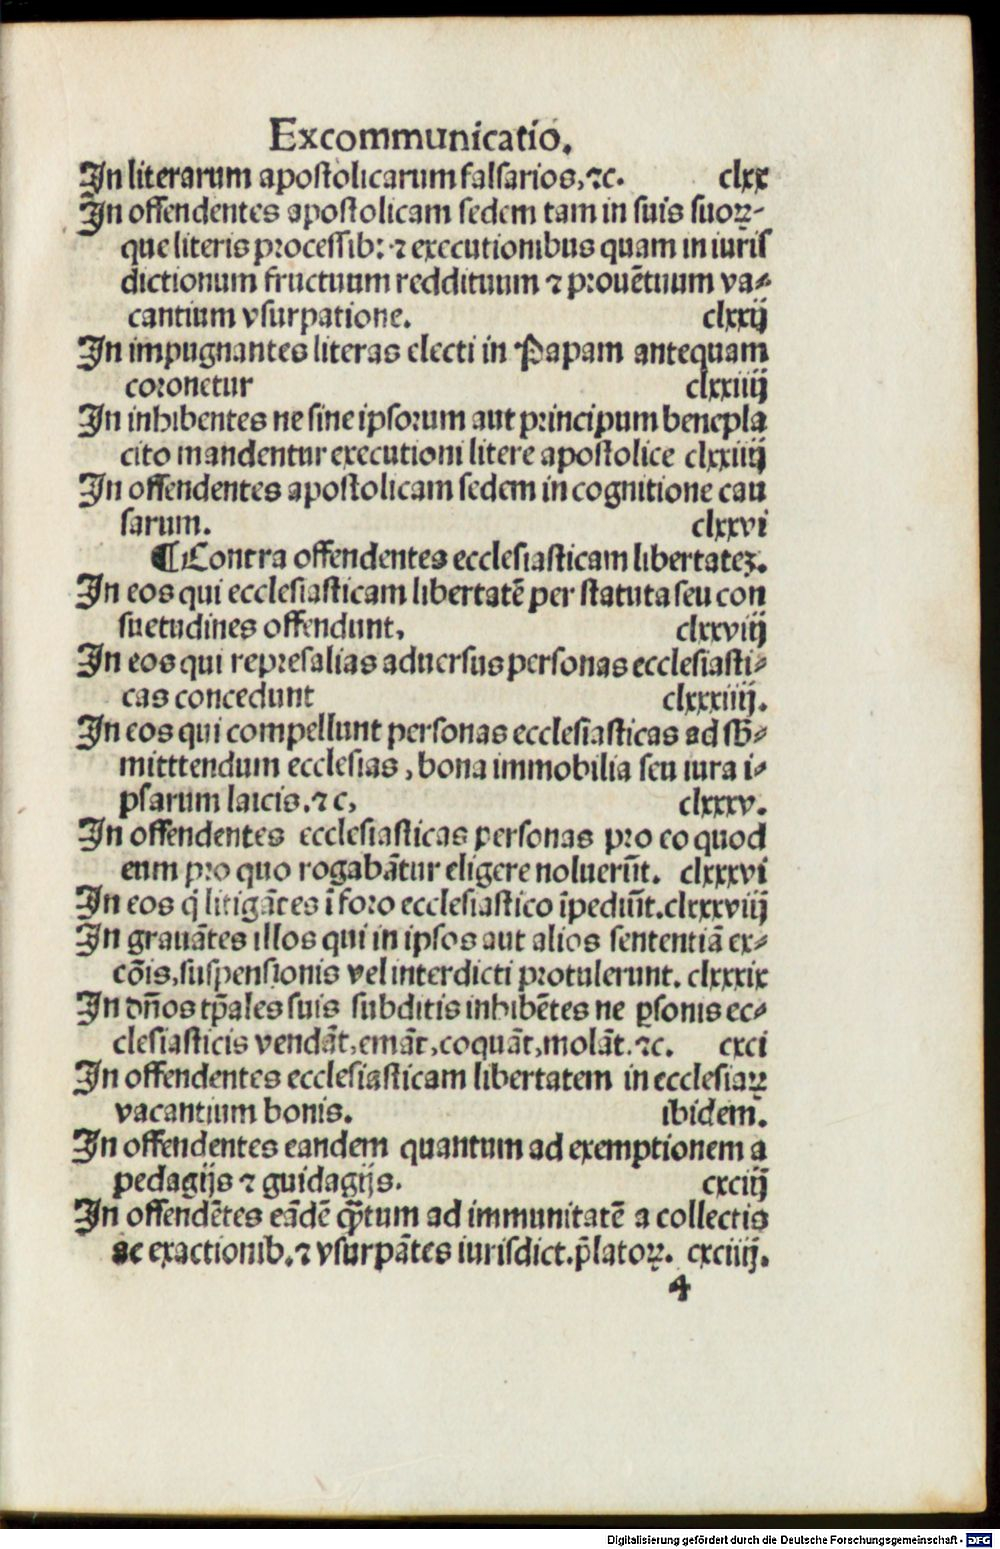 Excommunicatio.
In literarum apostolicarum falsarios, ⁊c. clxx
In offendentes apostolicam sedem tam in suis suoꝝ-
que literis processib: ⁊ executionibus quam in iuris
dictionum fructuum reddituum ⁊ prouētuum va-
cantium vsurpatione. clxxij
In impugnantes literas electi in Papam antequam
coronetur clxxiiij
In inhibentes ne sine ipsorum aut principum benepla
cito mandentur executioni litere apostolice clxxiiij
In offendentes apostolicam sedem in cognitione cau
sarum. clxxvi
¶Contra offendentes ecclesiasticam libertateꝫ.
In eos qui ecclesiasticam libertatē per statuta seu con
suetudines offendunt, clxxviij
In eos qui represalias aduersus personas ecclesiasti-
cas concedunt clxxxiiij.
In eos qui compellunt personas ecclesiasticas ad sb̄-
mitttendum ecclesias, bona immobilia seu iura i-
psarum laicis. ⁊ c, clxxxv.
In offendentes ecclesiasticas personas pro eo quod
eum pro quo rogabātur eligere noluerūt. clxxxvi
In eos q̇ litigātes ī foro ecclesiastico īpediūt. clxxxviij
In grauātes illos qui in ipsos aut alios sententiā ex-
cōis, suspensionis vel interdicti protulerunt. clxxxix
In dn̄os tp̄ales suis subditis inhibētes ne ꝑsonis ec-
clesiasticis vendāt, emāt, coquāt, molāt. ⁊c. cxci
In offendentes ecclesiasticam libertatem in ecclesiaꝝ
vacantium bonis. ibidem.
In offendentes eandem quantum ad exemptionem a
pedagijs ⁊ guidagijs. cxciij
In offendētes eādē qꝫtum ad immunitatē a collectis
ac exactionib. ⁊ vsurpātes iurisdict. p̄latoꝝ. cxciiij.
4
Digitalisierung gefördert durch die Deutsche Forschungsgemeinschaft - DFG